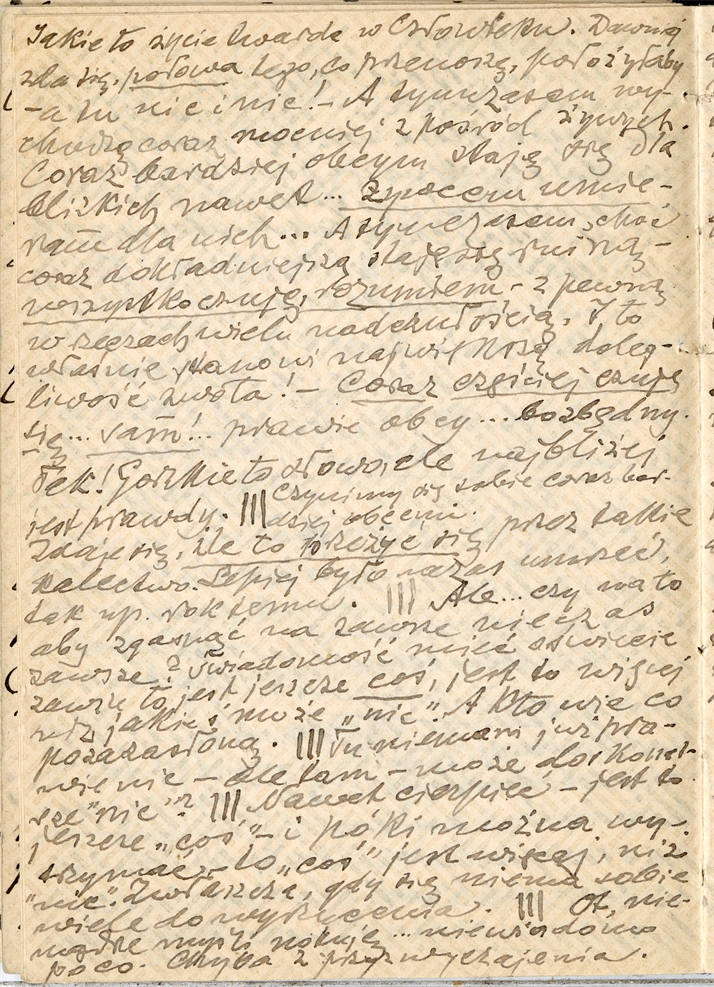 Jakie to życie twarde w Człowieku. Dawniej
zda się, połowa tego, co przenoszę, położyłaby
- a tu nic i nic! - A tymczasem wy-
chodzę coraz mocniej z pośród żywych.
Coraz bardziej obcym staję się dla
blizkich nawet... Zpocem umie-
ram dla nich... A tymczasem, choć
coraz dokładniejszą staję się ruiną -
wszystko czuję, rozumiem - z pewną
w rzeczach wielu nadczułością. I to
właśnie stanowi najwiękrzą doleg-
liwość zwota! - Coraz częściej czuję
się... sam!.. prawie obcy... bo zbędny.
Tek! Gorzkie to słowo, ale najbliżej
jest prawdy. ||| Czynimy się sobie coraz bar-
dziej obcemi.
Zdaje się, że to przeżyć się przez takie
kalectwo. Lepiej było naraz umrzeć,
tak np. rok temu. ||| Ale... czy na to
aby zgasnąć na zawsze nie czas
zawsze? Świadomość mieć o świecie
zawsze to jest jeszcze coś, jest to więcej
niż jakieś może „nic". A kto wie co
poza zasłoną. ||| Tu niemam już pra-
wie nic - ale tam - może doskonal-
sze „nic"? ||| Nawet cierpieć - jest to
jeszcze „coś" - i póki można wy-
trzymać, - to „coś" jest więcej, niż
"nic". Zwłaszcza, gdy się niema sobie
wiele do wyrzucenia. ||| Ot, nie-
mądre myśli notuję... niewiadomo
poco. Chyba z przyzwyczajenia.